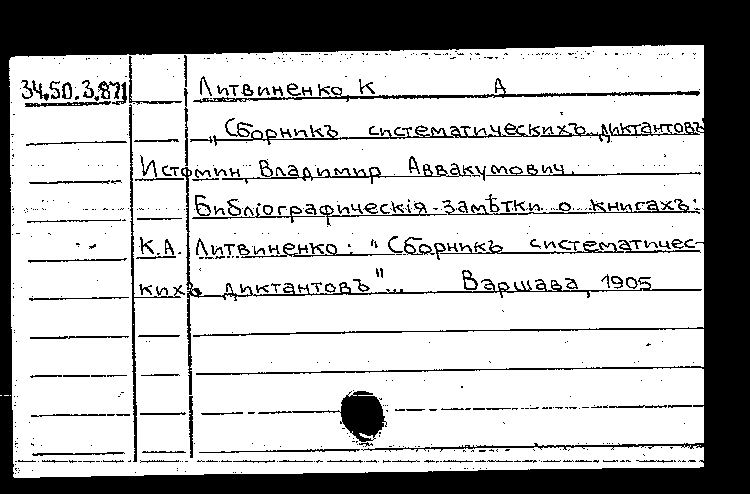 34.50.3.871 Литвиненко, К А
„Сборникъ систематическихъ диктантовъ"
Истомин, Владимир Аввакумович.
Библiографическiя замѣтки о книгахъ:
К.А. Литвиненко: "Сборникъ систематичес-
кихъ диктантовъ"... Варшава, 1905